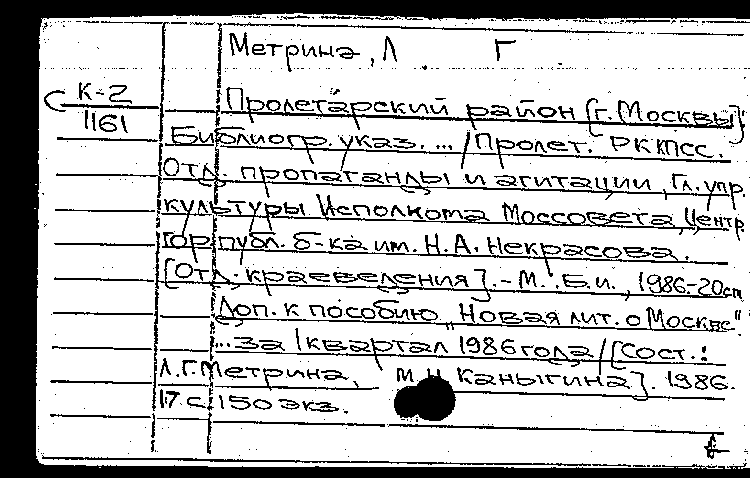 Метрина, Л. Г
К-2
1161
Пролетарский район [г. Москвы]:
Библиогр. указ. ... / Пролет. РК КПСС.
Отд. пропаганды и агитации, Гл. упр.
культуры Исполкома Моссовета, Центр
гор публ. б-ка им. Н.А. Некрасова.
[Отд. краеведения]. - М. : Б.и., 1986-20см
Доп. к пособию „Новая лит. о Москве".
...за I квартал 1986 года / [Сост.:
Л.Г. Метрина, М.Н. Каныгина]. 1986.
17 с. 150 экз.